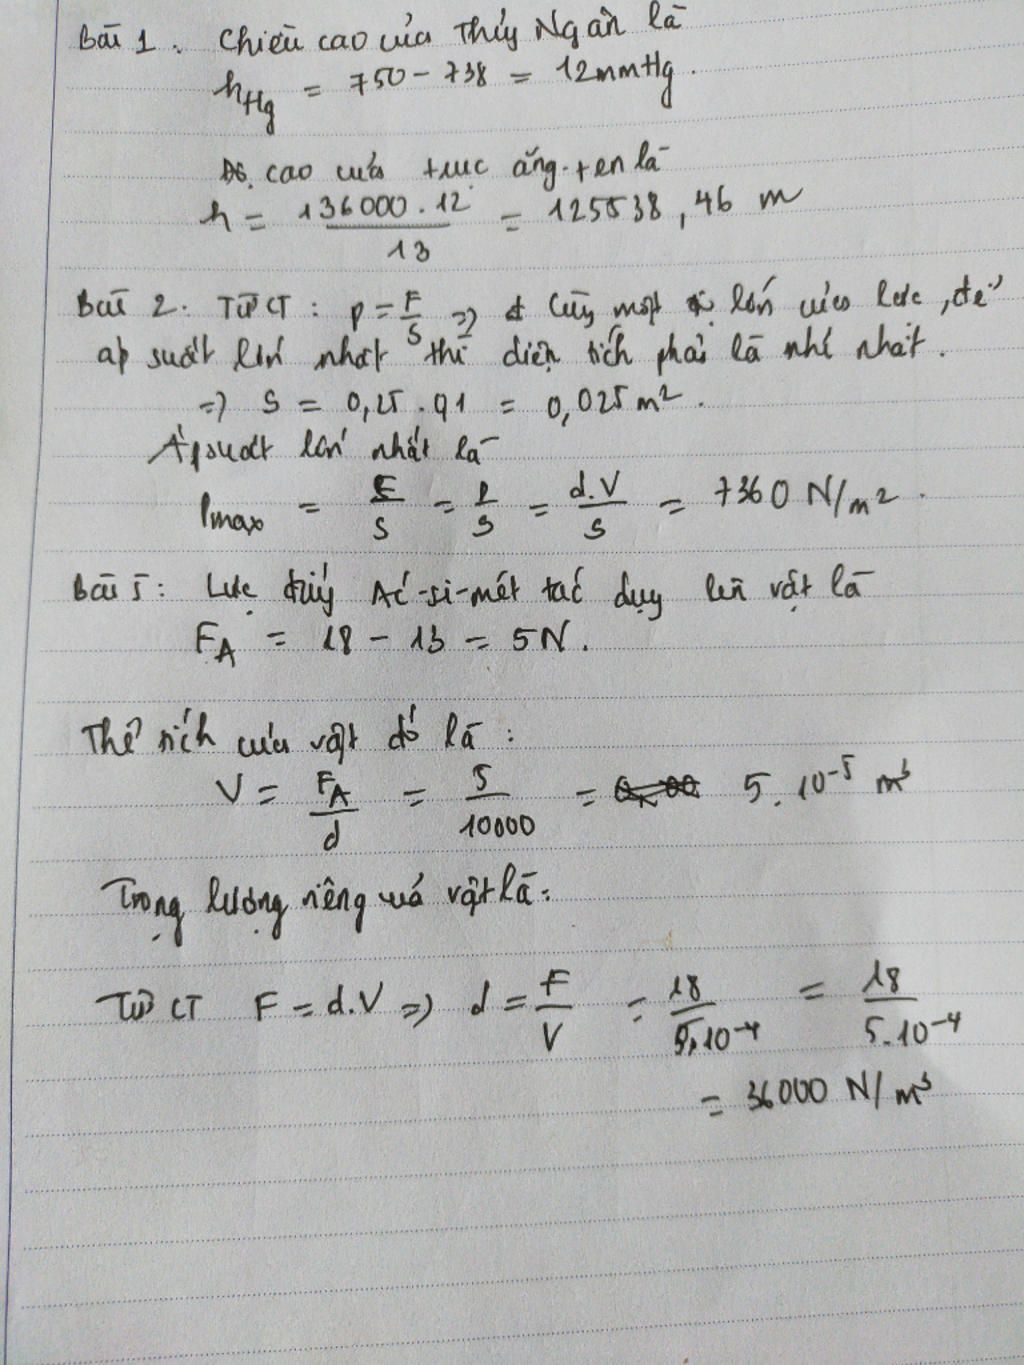 Bài 1. Chiều cao của Thủy Ngân là
hHg = 750 - 738 = 12mmHg.
Độ cao của trục ăng-ten là
h = 136000.12 / 13 = 125538,46 m
Bài 2. Từ CT: p = F/S => Cùng một lớn của lực, để
áp suất lớn nhất thì diện tích phải là nhỏ nhất.
=> S = 0,25.01 = 0,025 m².
Áp suất lớn nhất là
Pmax = F/S = P/S = d.V/S = 7360 N/m².
Bài 5: Lực đẩy Ác-si-mét tác dụng lên vật là
FA = 18 - 13 = 5N.
Thể tích của vật đó là:
V = FA/d = 5/10000 = 5.10⁻⁵ m³
Trọng lượng riêng của vật là:
Từ CT F = d.V => d = F/V = 18/5.10⁻⁴ = 18/5.10⁻⁴
= 36000 N/m³